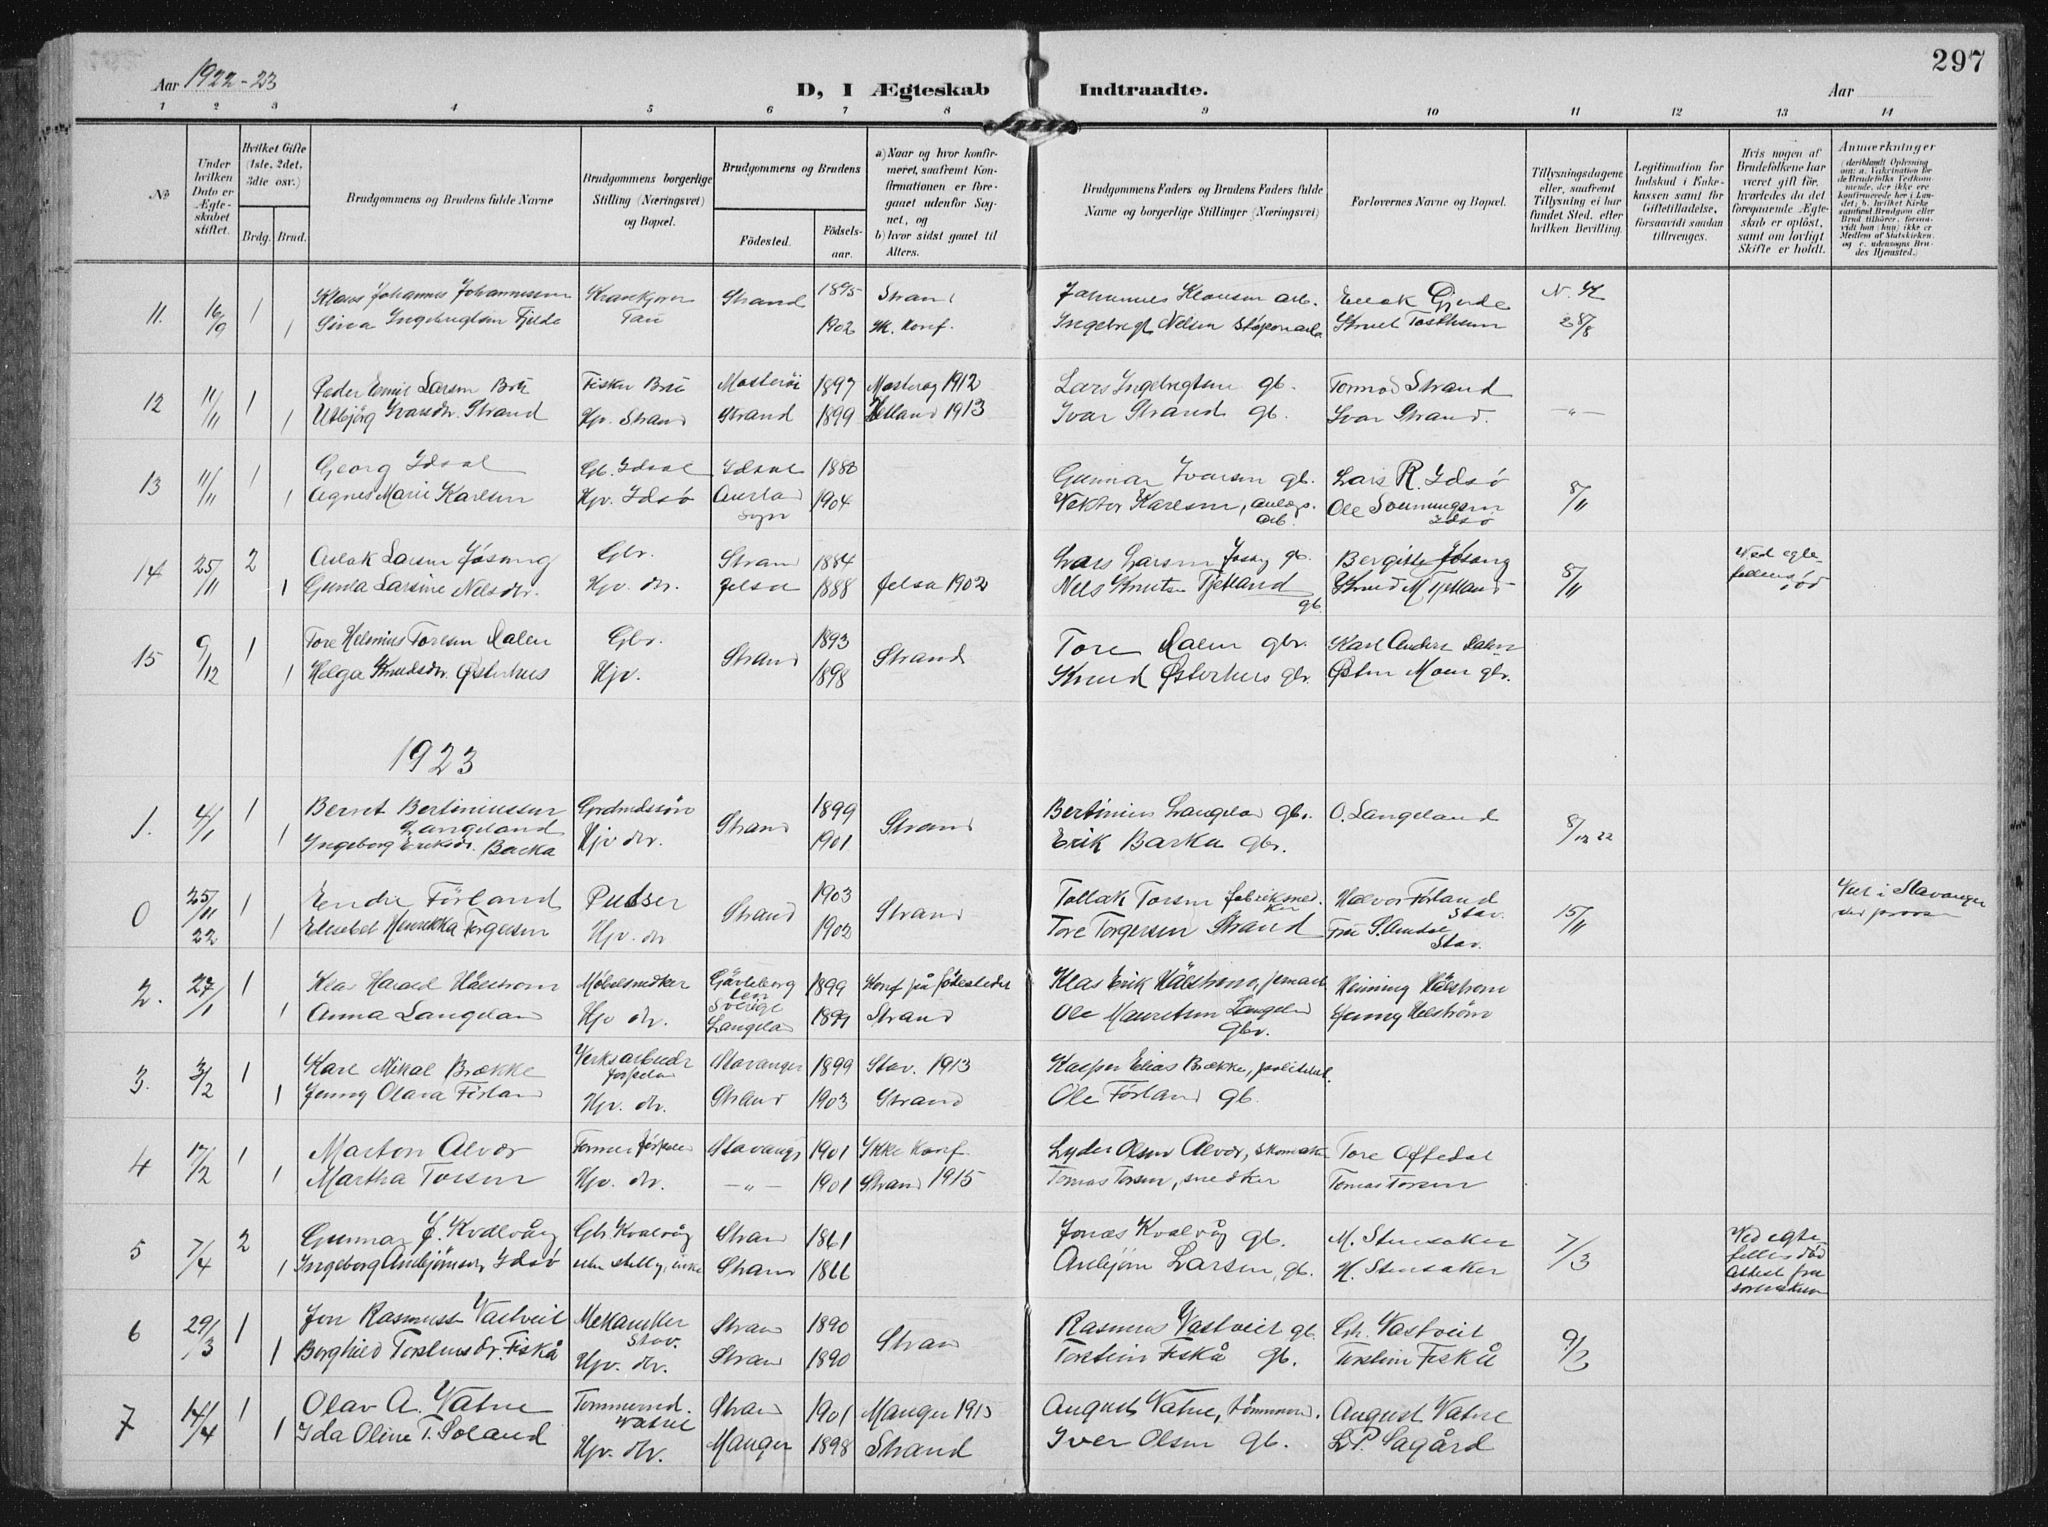 297
Aar 1922-23
D, I Ægteskab Indtraadte.
Aar
1 2 3 4 5 6 7 8 9 10 11 12 13 14
No.
Under hvilken Dato er Ægteskabet stiftet.
Hvilket Gifte (1ste, 2det, 3die osv.)
Brdg. Brud.
Brudgommens og Brudens fulde Navne
Brudgommens borgerlige Stilling (Næringsvei) og Bopæl.
Brudgommens og Brudens
Födested.
Födselsaar.
a) Naar og hvor konfirmeret, saafremt Konfirmationen er foregaaet udenfor Sognet, og
b) hvor sidst gaaet til Alters.
Brudgommens Faders og Brudens Faders fulde Navne og borgerlige Stillinger (Næringsvei)
Forlovernes Navne og Bopæl.
Tillysningsdagene eller, saafremt Tillysning ei har fundet Sted, efter hvilken Bevilling.
Legitimation for Indskud i Enkekassen samt for Giftetilladelse, forsaavidt saadan tiltrænges.
Hvis nogen af Brudefolkene har været gift før, hvorledes da det foregaaende Ægteskab er oplöst, samt om lovligt Skifte er holdt.
Anmerkninger
(deriblandt Oplysning om a. Vakcination for de Brudefolks Vedkommende, der ikke ere konfirmerede her i Landet; b. hvilket Kirkesamfund Brudgom eller Brud tilhörer, forsaavidt han (hun) ikke er Medlem af Statskirken, og c. udensogns Brudes Hjemsted.)
11. 16/9 1 Klaus Johannes Johannessen Tau Strand 1895 Strand Johannes Klausen arb. Gjerde
1 Ingebrigtsen Fjelde 1902 Konf. Ingebrigt Nelsen Knut 28/8
12 11/11 1 Peder Emil Larsen Brü Fisker Brü Mosteröi 1897 Mosteröy 1912 Lars Ingebrigtsen gb. Tormod Strand
1 Utbjörg Ivarsdr. Strand Hjv. Strand Strand 1899 Hetland 1913 Ivar Strand gb. Ivar Strand. -"-
13 11/11 1 Georg Idsal Gb. Idsal Idsal 1880 Gunnar Ivarsen gb. Lars R. Idsø
1 Agnes Marie Karlsen Hjv. Idsø sogn 1904 Karlsen, anlegs. arb. Ole Idsø 8/11
14 25/11 2 Aslak Larsen Jøsang Gbr. Strand 1884 Lars Larsen Jøsang gb. Bergitte Jøsang Ved egtefellens död
1 Larsine Nelsdr. Hjv. dr. Jelsa 1888 Jelsa 1902 Nels Knutsen Tjetland gb Knud M Tjetland 8/11
15 9/12 1 Tore Helenius Toresen Dalen Gbr. Strand 1893 Strand Tore Dalen gbr. Karl Anders Dalen
1 Helga Knudsdr. Østerhus Hjv. 1898 Knud Østerhus gbr. Østen Moen gbr.
1923
1. 4/1 1 Berent Bertiniussen Langeland Gbr. Strand 1899 Strand Bertinius Langeland gbr. O. Langeland 8/12 22
1 Ingeborg Eriksdr. Barka Hjv dr. 1901 Erik Barka gbr.
0 25/11 22 1 Endre Førland Pudser Strand 1903 Strand Tollak Torsen fabriksnedker Halvor Førland Stav. 15/11 Viet i Stavanger
1 Elisabet Henrikka Torgersen Hjv. dr 1902 Tore Torgersen Strand Fru Stav.
2. 27/1 1 Klas Harald Hälstrom Møbelsnedker Gävleborg len Sverige 1899 Konf på födestedet Klas Erik Hälstrom, Henning Hälstrom
1 Anna Langeland Hjv dr. Langeland 1899 Strand Ole Mauritsen Langeland gbr. Jenny Helström
3. 3/2 1 Karl Mikal Brække Verksarbeider Jørpeland Stavanger 1899 Stav. 1913 Kasper Elias Brække,
1 Jenny Olava Førland Hjv. dr. Strand 1903 Strand Ole Førland gb.
4 17/2 1 Marton Alvær Former Jørpeland Stavanger 1901 Ikke konf. Lyder Olsen Alvær, Tore Oftedal
1 Martha Torsen Hjv. dr. -"- 1901 Strand 1915 Tomas Torsen, snedker Tomas Torsen
5 7/4 2 Gunnar J. Kvalvåg Gbr Kvalvåg Strand 1861 Jonas Kvalvåg gb. M. Stensaker 7/3 Ved egtefelles död Attest fra sorenskriver
1 Ingeborg Idsø Strand 1866 Larsen, gb. H. Stensaker
6 29/3 1 Jon Rasmussen Vastveit Mekaniker Stav. Strand 1890 Strand Rasmus Vastveit gb. Vastveit 9/3
1 Borghild Torsteinsdr. Fiskå Hjv. dr. Strand 1890 Torstein Fiskå gb. Torstein Fiskå
7 14/4 1 Olav A. Vatne Vatne Strand 1901 Manger 1915 August Vatne, tömmerm. August Vatne
1 Ida Oline T. Soland Hjv. dr. Manger 1898 Strand Iver Olsen gb. Sagård